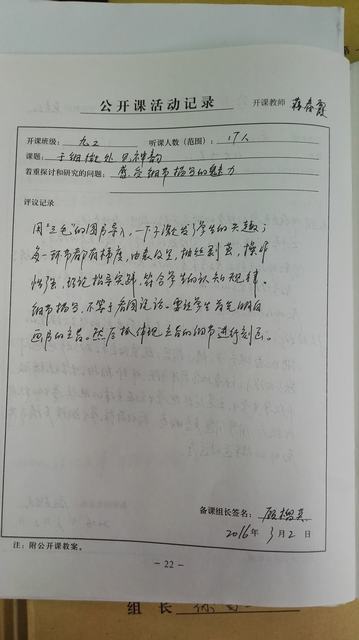 公开课活动记录 开课教师 蒋春霞
开课班级: 九2 听课人数(范围): 17人
课题: 于细微处见神韵
着重探讨和研究的问题: 感受细节描写的魅力
评议记录
用“三毛”的图片导入,一下子激发了学生的兴趣;
每一环节都有梯度,由表及里,抽丝剥茧,操作
性强,理论指导实践,符合学生的认知规律。
细节描写,不等于看图说话。要让学生首先明白
画片的主旨。然后抓体现主旨的细节进行刻画。
备课组长签名:
2016年 3月 2日
注: 附公开课教案。
- 22 -
组 长